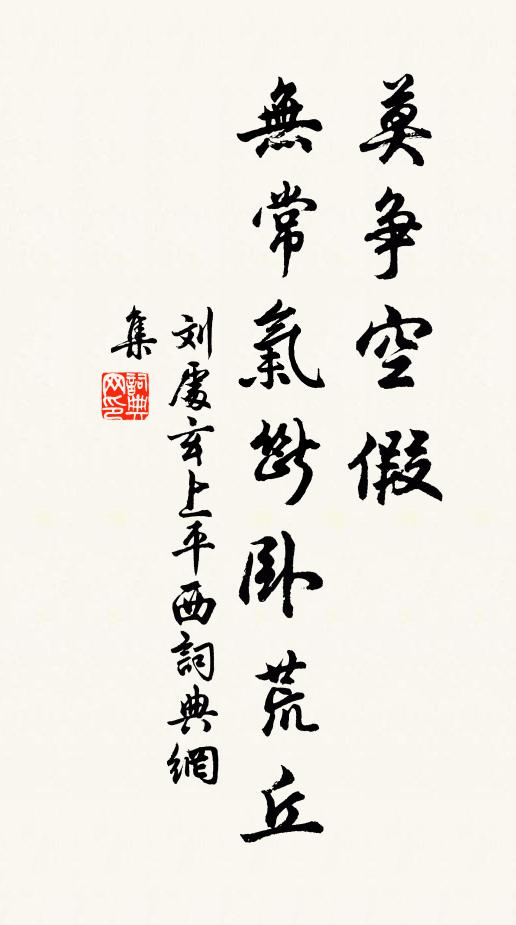 莫争空假
無常氣斷卧荒丘
刘處玄上平西詞典網
集
詞典网印